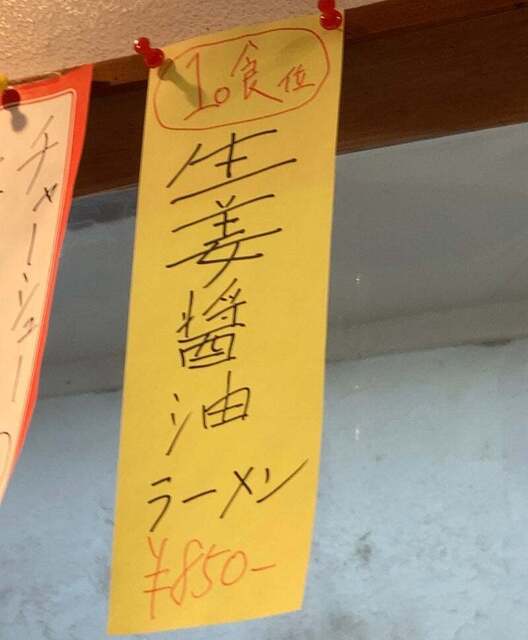 10食位
生姜醤油
ラーメン
¥850-
チャーシュー